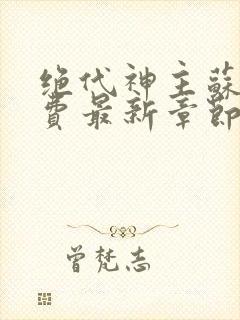 绝代神主蘇
費最新章節
曾梵志